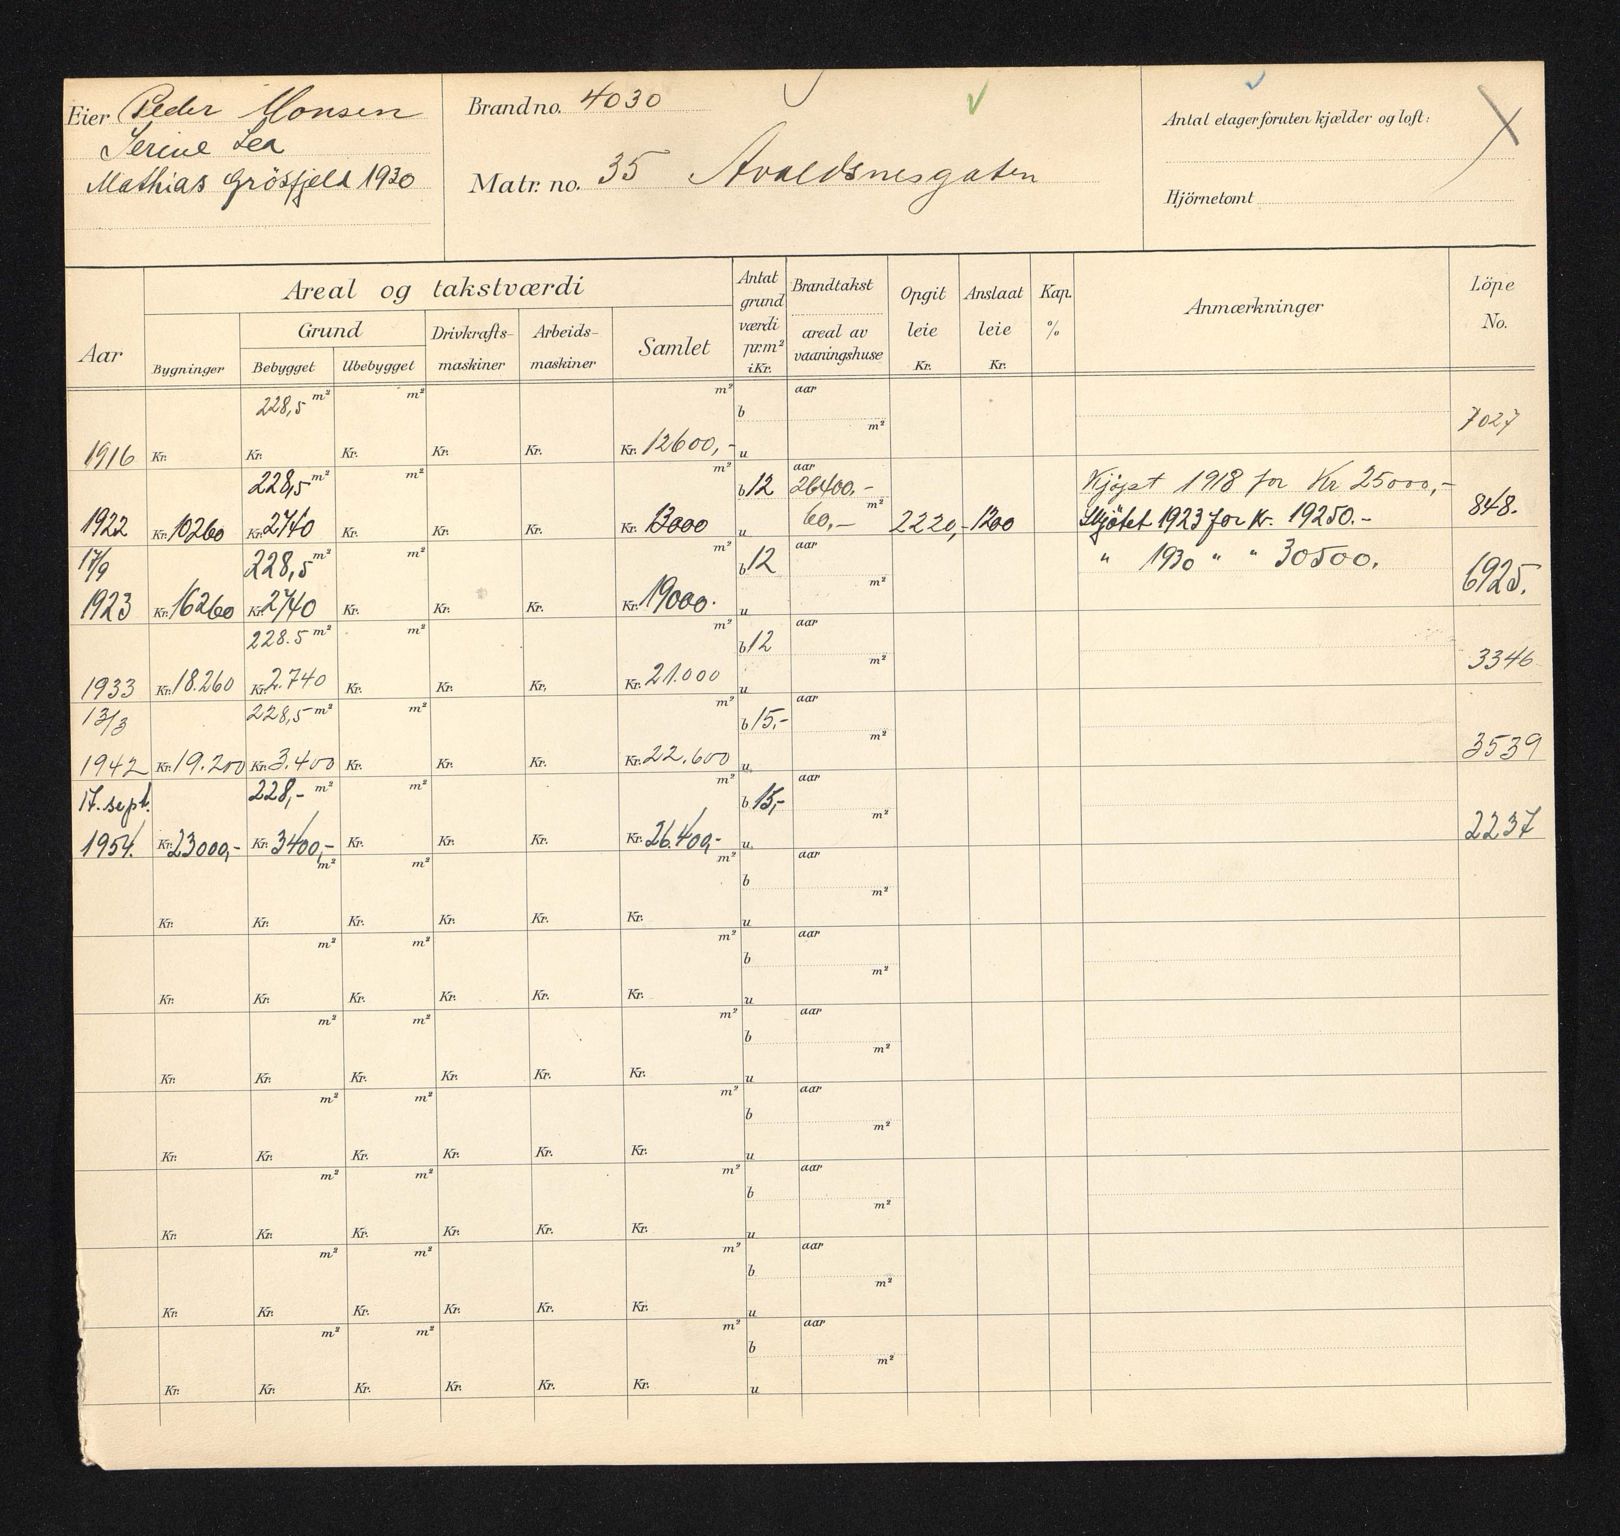 Eier Peder Monsen
Serine Lea
Mathias Grösfjeld 1930
Brand no. 4030
Matr. no. 35 Avaldsnesgaten
Antal etager foruten kjælder og loft:
Hjörnetomt
Aar
Areal og takstværdi
Bygninger
Grund
Bebygget
Ubebygget
Drivkrafts-
maskiner
Arbeids-
maskiner
Samlet
Antat
grund
værdi
pr. m²
i Kr.
Brandtakst
areal av
vaaningshuse
Opgit
leie
Kr.
Anslaat
leie
Kr.
Kap.
%
Anmærkninger
Löpe
No.
228,5 m² m² m² b aar
m² 7027
1916 Kr. Kr. Kr. Kr. Kr. Kr. 12600,- u
228,5 m² m² m² b 12 aar 26400,- Kjøpt 1918 for Kr 25000,-
1922 Kr. 10260 Kr. 2740 Kr. Kr. Kr. Kr. 13000 u 60,- m² 2220,- 1200 Skjötet 1923 for Kr. 19250.- 848.
17/9 228,5 m² m² m² b 12 aar " 1930 " " 30500.
m² 6925.
1923 Kr. 16260 Kr. 2740 Kr. Kr. Kr. Kr. 19000. u
228.5 m² m² m² b 12 aar
m² 3346
1933 Kr. 18.260 Kr. 2.740 Kr. Kr. Kr. Kr. 21.000 u
13/3 228,5 m² m² m² b 15,- aar
m² 3539
1942 Kr. 19.200 Kr. 3.400 Kr. Kr. Kr. Kr. 22.600 u
17. sept. 228,- m² m² m² b 15,- aar
m² 2237
1954. Kr. 23000,- Kr. 3400,- Kr. Kr. Kr. Kr. 26.400,- u
m² m² m² b aar
m²
Kr. Kr. Kr. Kr. Kr. Kr. u
m² m² m² b aar
m²
Kr. Kr. Kr. Kr. Kr. Kr. u
m² m² m² b aar
m²
Kr. Kr. Kr. Kr. Kr. Kr. u
m² m² m² b aar
m²
Kr. Kr. Kr. Kr. Kr. Kr. u
m² m² m² b aar
m²
Kr. Kr. Kr. Kr. Kr. Kr. u
m² m² m² b aar
m²
Kr. Kr. Kr. Kr. Kr. Kr. u
m² m² m² b aar
m²
Kr. Kr. Kr. Kr. Kr. Kr. u